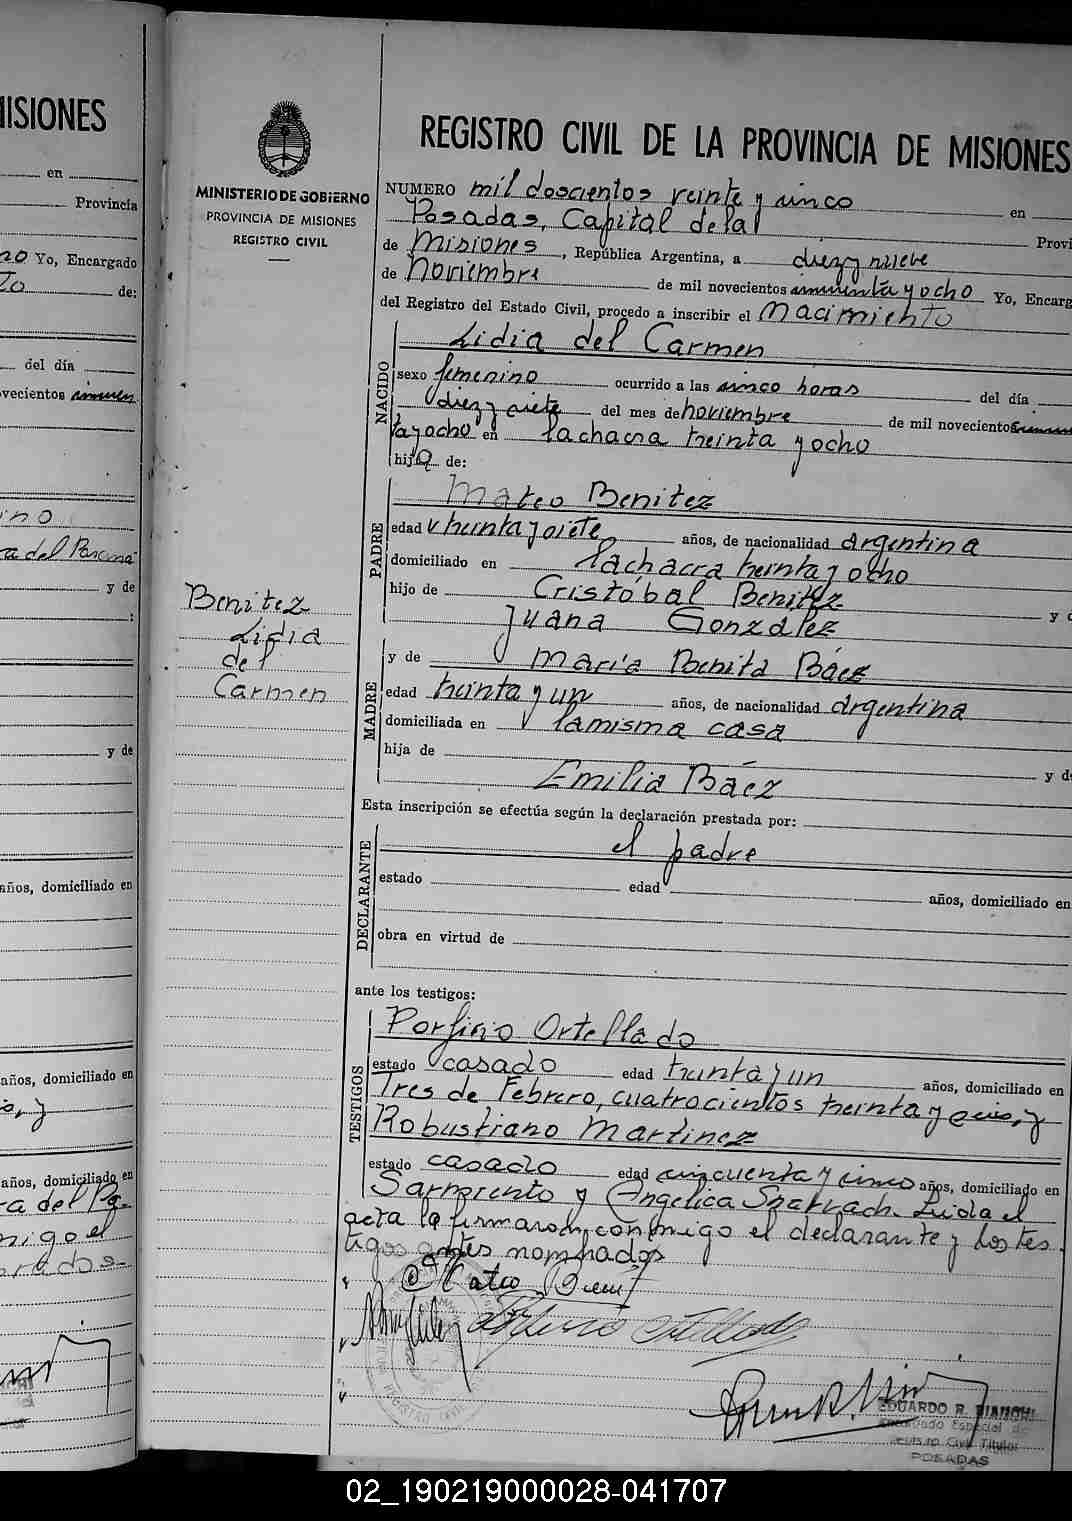 MISIONES
en
Provincia
Yo, Encargado
de:
del día
vecientos
ino
a del Paraná
y de
:
y de
años, domiciliado en
años, domiciliado en
años, domiciliado en
nigo el
MINISTERIO DE GOBIERNO
PROVINCIA DE MISIONES
REGISTRO CIVIL
Benitez
Lidia
del
Carmen
REGISTRO CIVIL DE LA PROVINCIA DE MISIONES
NUMERO mil doscientos veinte y cinco en
Posadas, Capital de la Provi
de Misiones, República Argentina, a diez y nueve
de Noviembre de mil novecientos cincuenta y ocho Yo, Encarg
del Registro del Estado Civil, procedo a inscribir el Nacimiento
NACIDO
Lidia del Carmen
sexo femenino ocurrido a las cinco horas del día
diez y siete del mes de noviembre de mil novecientos cincuen
ta y ocho en la chacra treinta y ocho
hija de:
PADRE
Mateo Benitez
edad treinta y siete años, de nacionalidad argentina
domiciliado en la chacra treinta y ocho
hijo de Cristóbal Benitez y d
Juana González
MADRE
y de Maria Benita Báez
edad treinta y un años, de nacionalidad argentina
domiciliada en la misma casa
hija de y d
Emilia Báez
Esta inscripción se efectúa según la declaración prestada por:
DECLARANTE
el padre
estado edad años, domiciliado en
obra en virtud de
ante los testigos:
TESTIGOS
Porfirio Ortellado
estado casado edad treinta y un años, domiciliado en
Tres de Febrero, cuatrocientos treinta y seis, y
Robustiano Martinez
estado casado edad cincuenta y cinco años, domiciliado en
Sarmiento y Leida el
acta la firmaron conmigo el declarante y los tes
tigos antes nominados
Mateo Benit
EDUARDO R. BIANCHI
Encargado Especial de
Registro Civil Titular
POSADAS
02_190219000028-041707